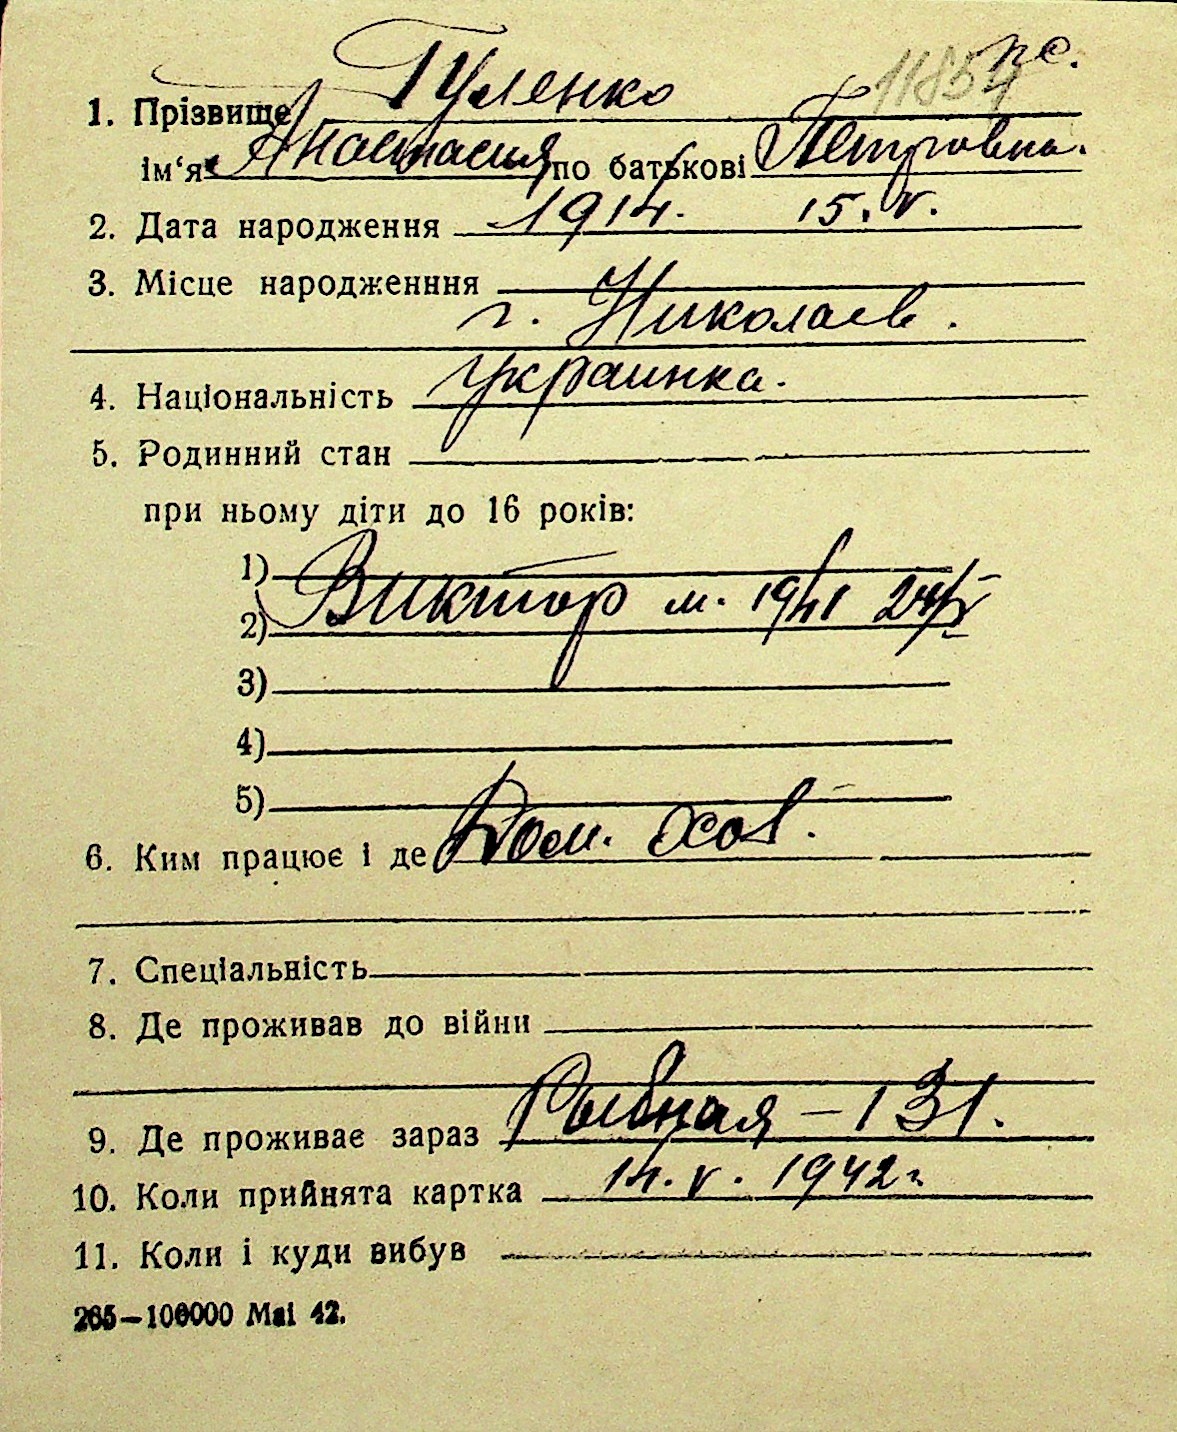 11854 пс.
1. Прізвище Гуленко
ім‘я Анастасия по батькові Петровна.
2. Дата народження 1914. 15. V.
3. Місце народженння
г. Николаев.
4. Національність украинка.
5. Родинний стан
при ньому діти до 16 років:
1)
2) Виктор м. 1941 24/V
3)
4)
5)
6. Ким працює і де Дом. хоз.
7. Спеціальність
8. Де проживав до війни
9. Де проживає зараз Рыбная – 131.
10. Коли прийнята картка 14. V. 1942 г
11. Коли і куди вибув
265—100000 Mai 42.